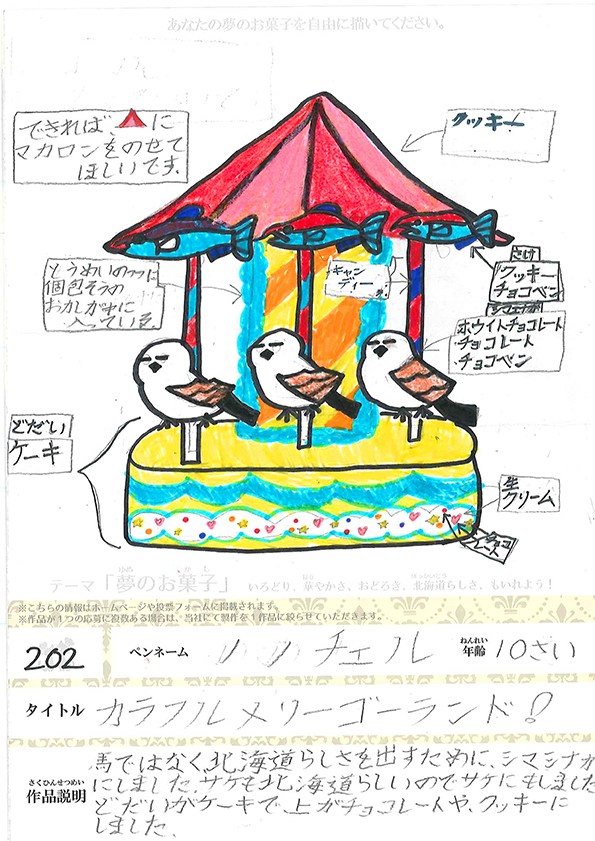 あなたの夢のお菓子を自由に描いてください。
できれば、に
マカロンをのせて
ほしいです。
クッキー
とうめいの
個包そうの
おかしが中に
入っている。
キャン
ディー
さけ
クッキー
チョコペン
シマエナガ
ホワイトチョコレート
チョコレート
チョコペン
どだい
ケーキ
生
クリーム
チョコ
レート
テーマ「夢のお菓子」 いろどり、華やかさ、おどろき、北海道らしさ、もいれよう!
※こちらの情報はホームページや投票フォームに掲載されます。
※作品が1つの応募に複数ある場合は、当社にて製作を1作品に絞らせていただきます。
202 ペンネーム チェル 年齢 10さい
タイトル カラフルメリーゴーランド!
作品説明
馬ではなく、北海道らしさを出すために、シマエナガ
にしました。サケも北海道らしいのでサケにもしました
どだいがケーキで、上がチョコレートや、クッキーに
しました。